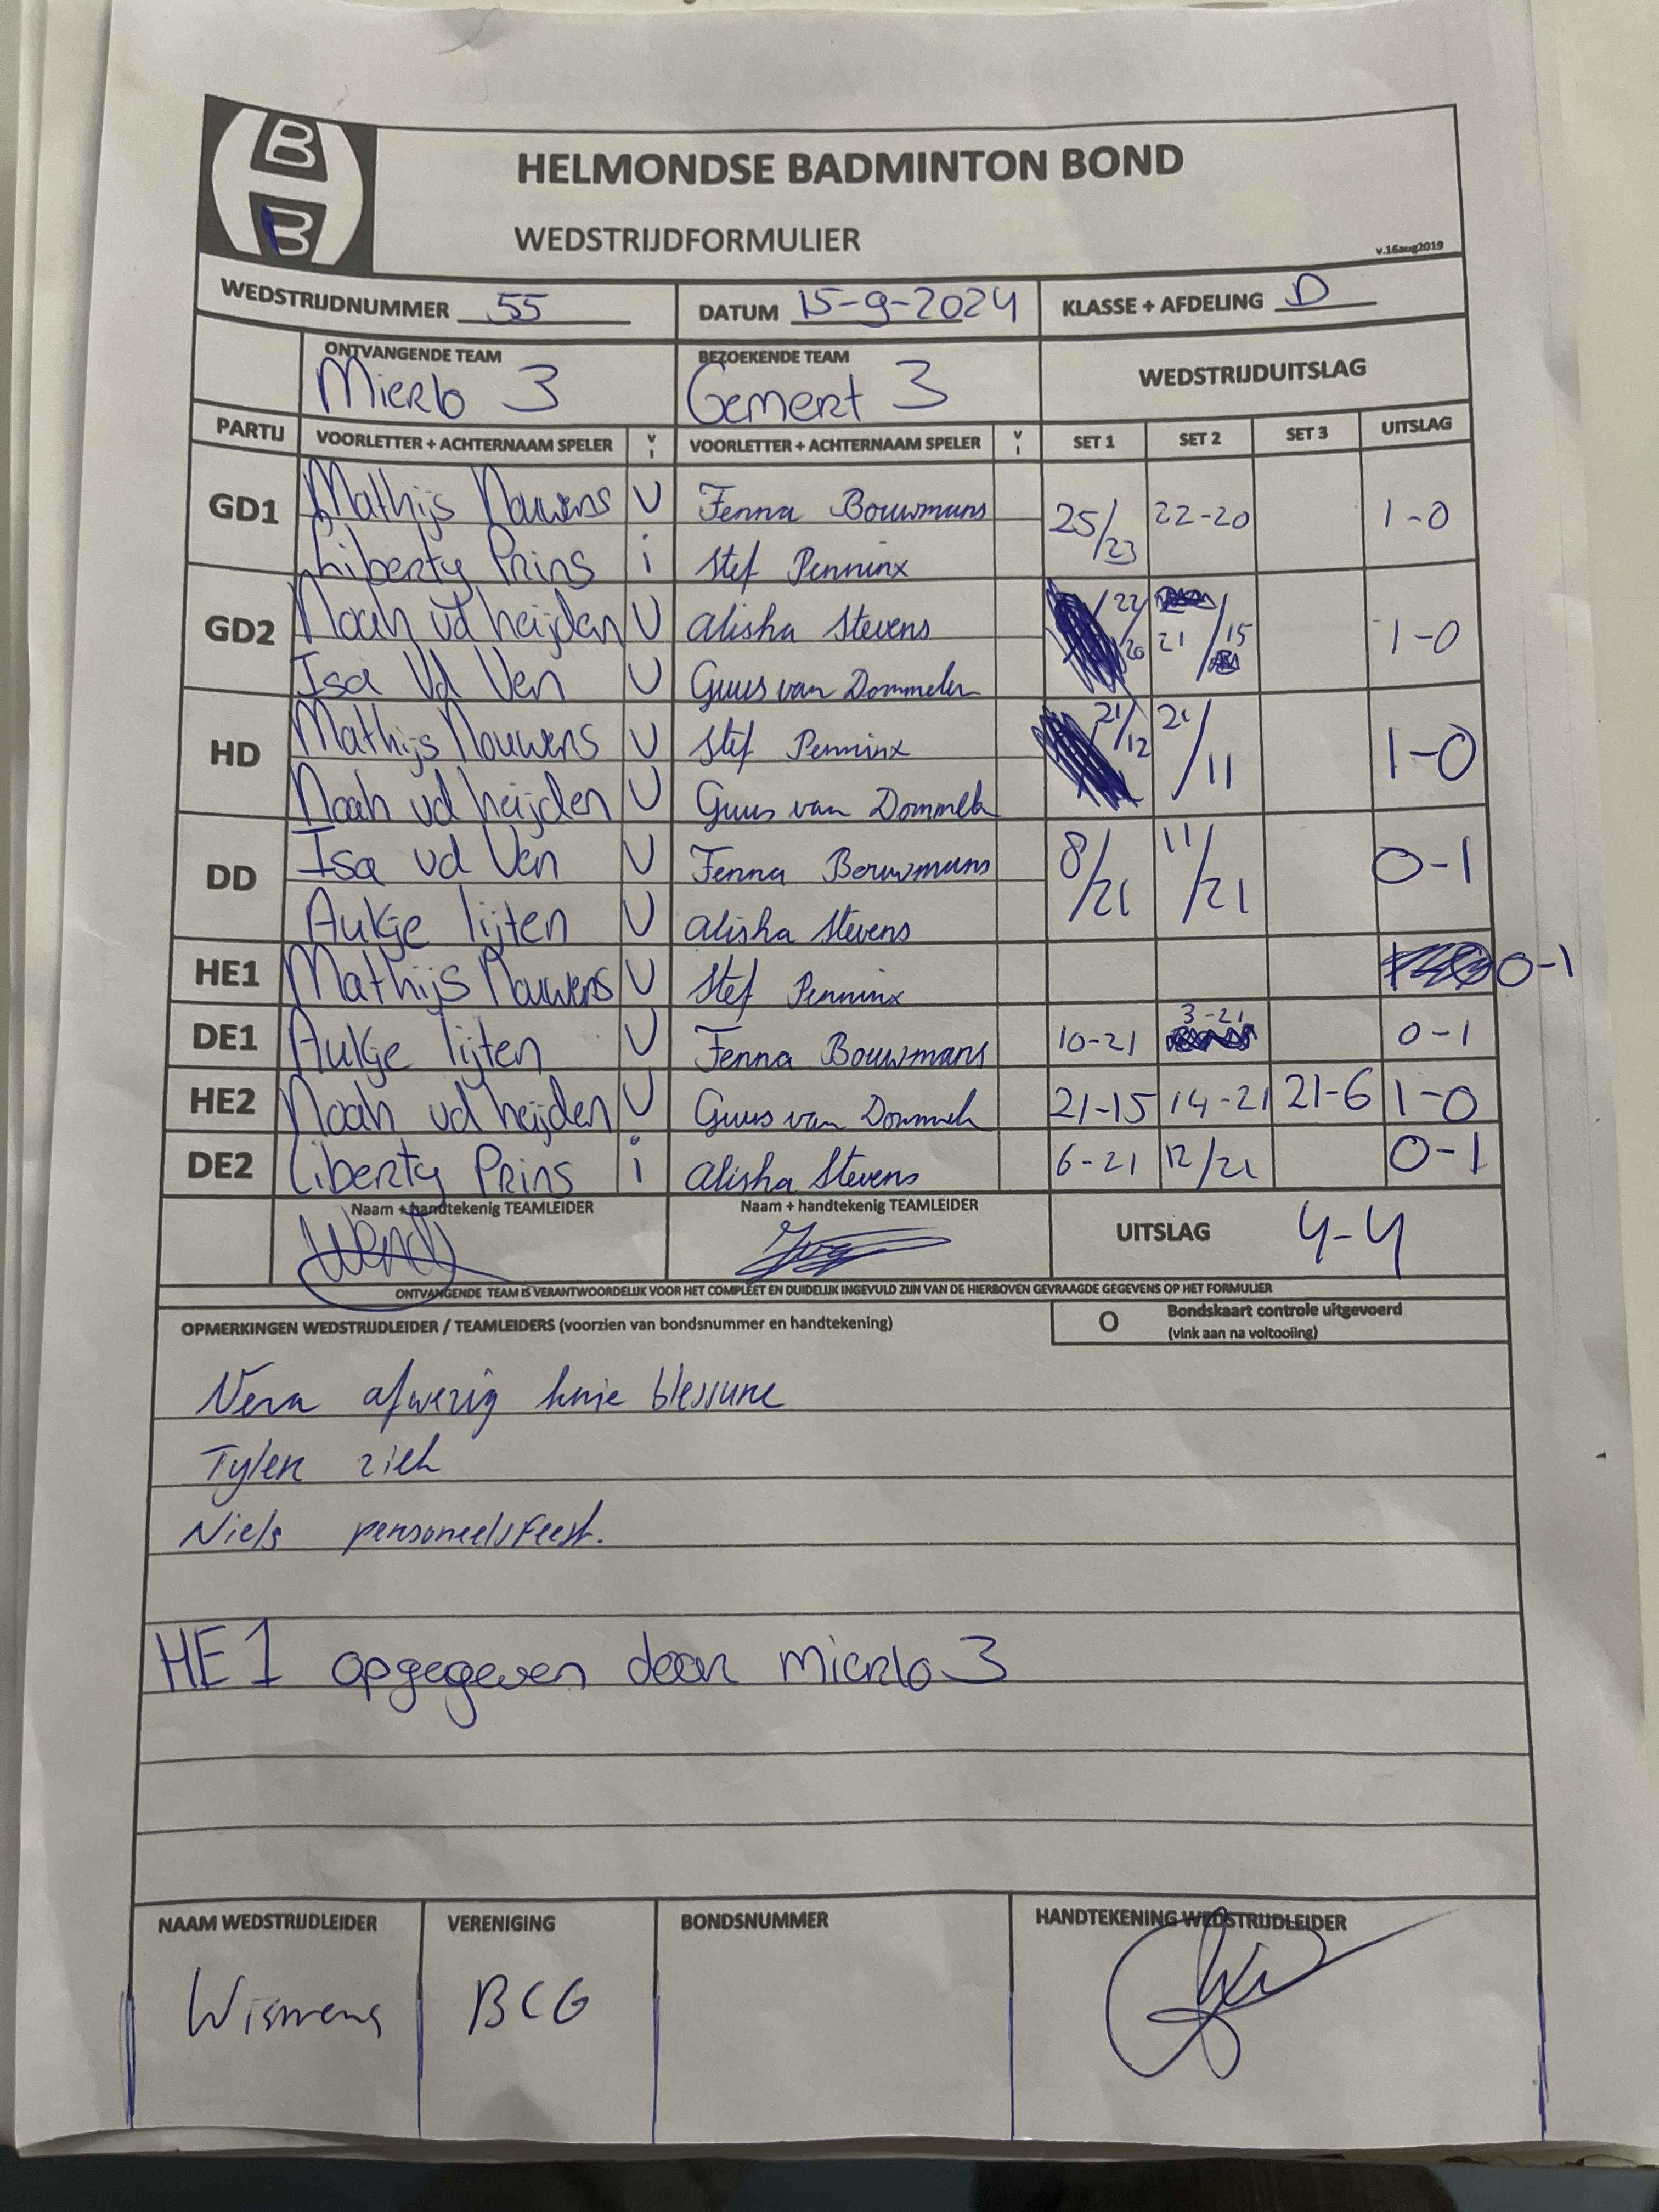 B
B
HELMONDSE BADMINTON BOND
WEDSTRIJDFORMULIER
v.16aug2019
WEDSTRIJDNUMMER 55 DATUM 15-9-2024 KLASSE + AFDELING D
ONTVANGENDE TEAM BEZOEKENDE TEAM WEDSTRIJDUITSLAG
Mierlo 3 Gemert 3
PARTIJ VOORLETTER + ACHTERNAAM SPELER V I VOORLETTER + ACHTERNAAM SPELER V I SET 1 SET 2 SET 3 UITSLAG
GD1 Mathijs Nouwens V Fenna Bouwmans 25/23 22-20 1-0
Liberty Prins i Stef Penninx
GD2 Noah vd heijden V Alisha Stevens 22/20 21/15 1-0
Isa Vd Ven V Guus van Dommelen
HD Mathijs Nouwens V Stef Penninx 21/12 21/11 1-0
Noah vd heijden V Guus van Dommelen
DD Isa vd Ven V Fenna Bouwmans 8/21 11/21 0-1
Aukje lijten V Alisha Stevens
HE1 Mathijs Nouwens V Stef Penninx 0-1
DE1 Aukje lijten V Fenna Bouwmans 10-21 3-21 0-1
HE2 Noah vd heijden V Guus van Dommeln 21-15 14-21 21-6 1-0
DE2 Liberty Prins i Alisha Stevens 6-21 12/21 0-1
Naam + handtekenig TEAMLEIDER Naam + handtekenig TEAMLEIDER UITSLAG 4-4
ONTVANGENDE TEAM IS VERANTWOORDELIJK VOOR HET COMPLEET EN DUIDELIJK INGEVULD ZIJN VAN DE HIERBOVEN GEVRAAGDE GEGEVENS OP HET FORMULIER
OPMERKINGEN WEDSTRIJDLEIDER / TEAMLEIDERS (voorzien van bondsnummer en handtekening) O Bondskaart controle uitgevoerd
(vink aan na voltooiing)
Vera afwezig knie blessure
Tyler ziek
Niels personeelsfeest.
HE1 opgegeven door Mierlo 3
NAAM WEDSTRIJDLEIDER VERENIGING BONDSNUMMER HANDTEKENING WEDSTRIJDLEIDER
Wismens BCG